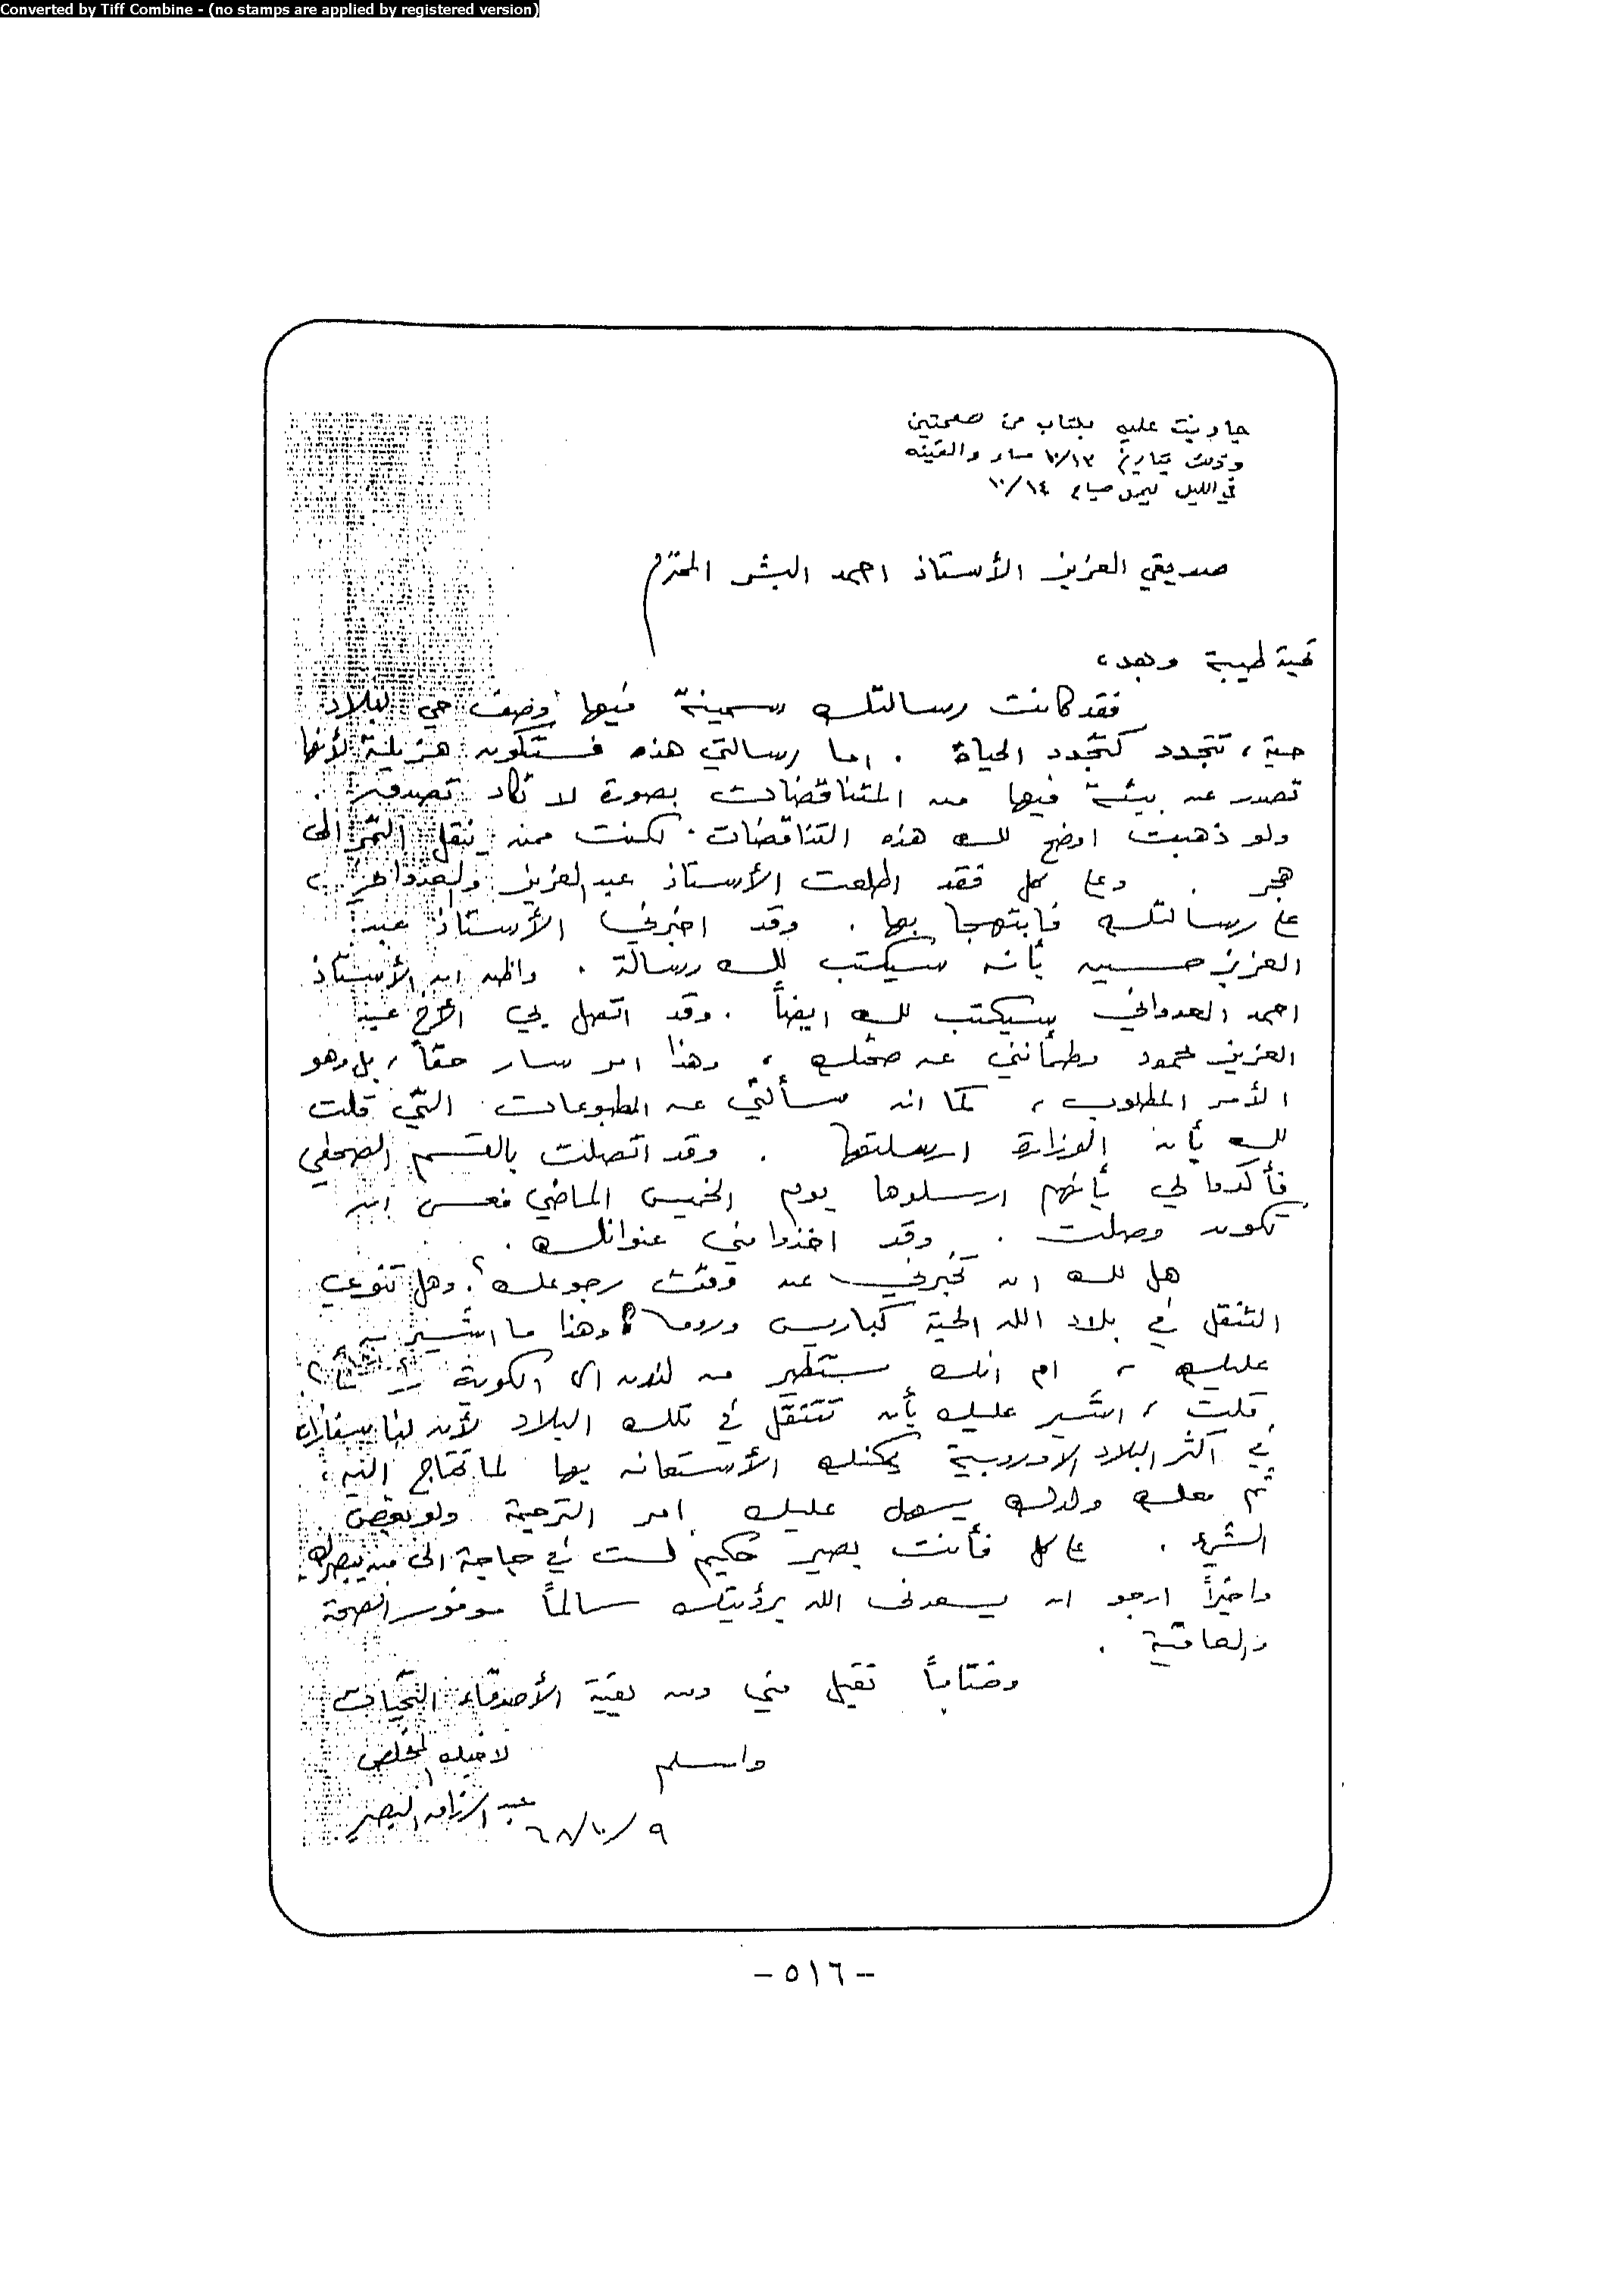 Converted by Tiff Combine - (no stamps are applied by registered version)
جاوبت عليه بكتاب من صفحتين
وذلك بتاريخ ١٠/١٣ مساء والقيته
في الليل ليمر صباح ١٠/١٤
صديقي العزيز الأستاذ احمد البشر المحترم
تحية طيبة وبعد،
فقد كانت رسالتك سمينة فيها وصف حي لبلاد
حية، تتجدد كتجدد الحياة . اما رسالتي هذه فستكون هزيلة لأنها
تصدر عن بيئة فيها من المتناقضات بصورة لا تكاد تصدق .
ولو ذهبت اوضح لك هذه التناقضات لكنت كمن ينقل التمر الى
هجر . وعلى كل فقد اطلعت الأستاذ عبد العزيز والعدواني
على رسالتك فابتهجا بها . وقد اخبرني الأستاذ عبد
العزيز حسين بأنه سيكتب لك رسالة . واظن ان الأستاذ
احمد العدواني سيكتب لك ايضاً . وقد اتصل بي الأخ عبد
العزيز محمود وطمأنني عن صحتك ، وهذا امر سار حقاً ، بل وهو
الأمر المطلوب ، كما انه سألني عن المطبوعات التي قلت
لك بأن الوزارة ارسلتها . وقد اتصلت بالقسم الصحفي
فأكدوا لي بأنهم ارسلوها يوم الخميس الماضي فعسى ان
تكون وصلت . وقد اخذوا مني عنوانك .
هل لك ان تخبرني عن وقت رجوعك ؟ وهل تنوي
التنقل في بلاد الله الحية كباريس وروما ؟ وهذا ما اشير به
عليك ، ام انك ستطير من لندن الى الكويت رأساً ؟
قلت ، اشير عليك بأن تتنقل في تلك البلاد لأن لنا سفارات
في اكثر البلاد الاوروبية يمكنك الأستعانه بها لما تحتاج اليه ،
ثم معك ولدك يسهل عليك امر الترجمة ولو بعض
الشيء . على كل فأنت بصير حكيم لست في حاجة الى من يبصرك .
واخيراً ارجو ان يسعدني الله برؤيتك سالماً موفور الصحة
والعافية .
وختاماً تقبل مني ومن بقية الأصدقاء التحيات
واسلم لاخيك المخلص
عبد الرزاق البصير
٦٨/١٠/٩
- ٥١٦ -